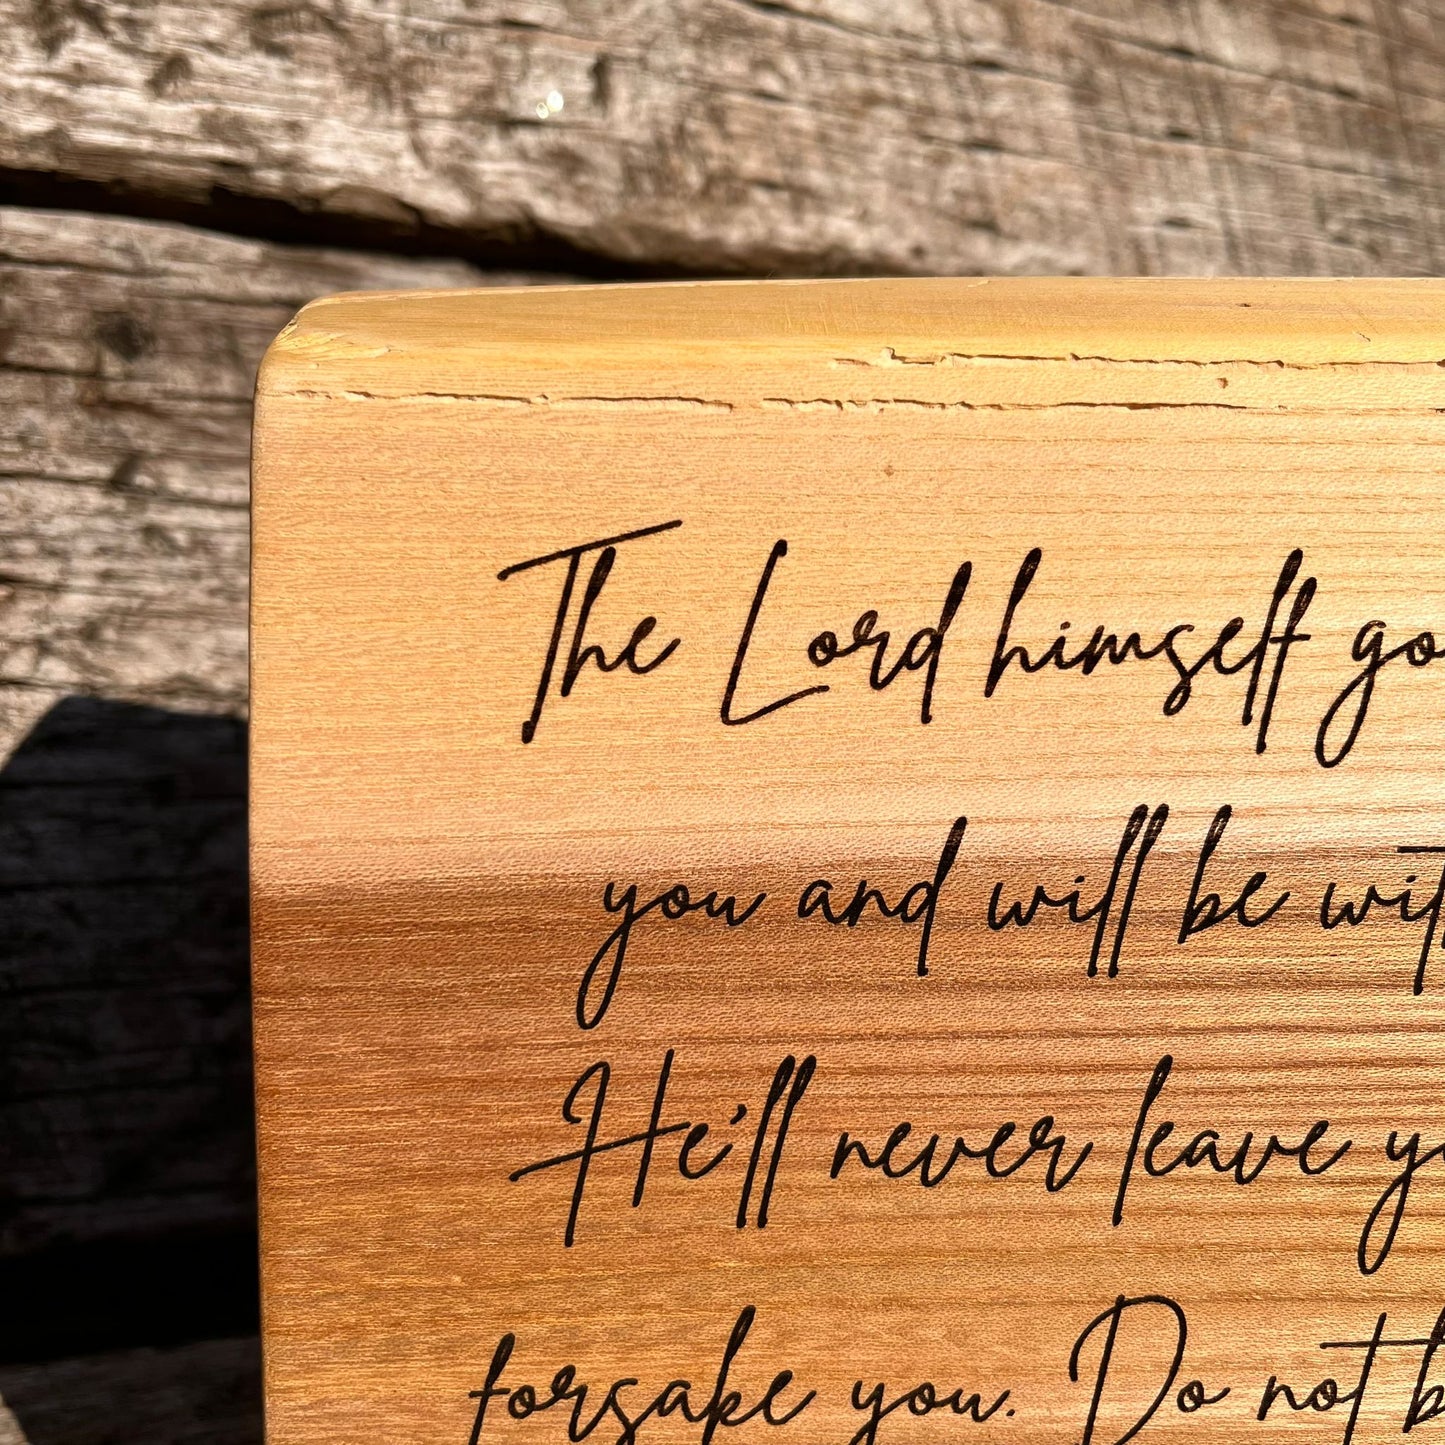 The Lord himself go
you and will be wit
He'll never leave y
forsake you. Do not b